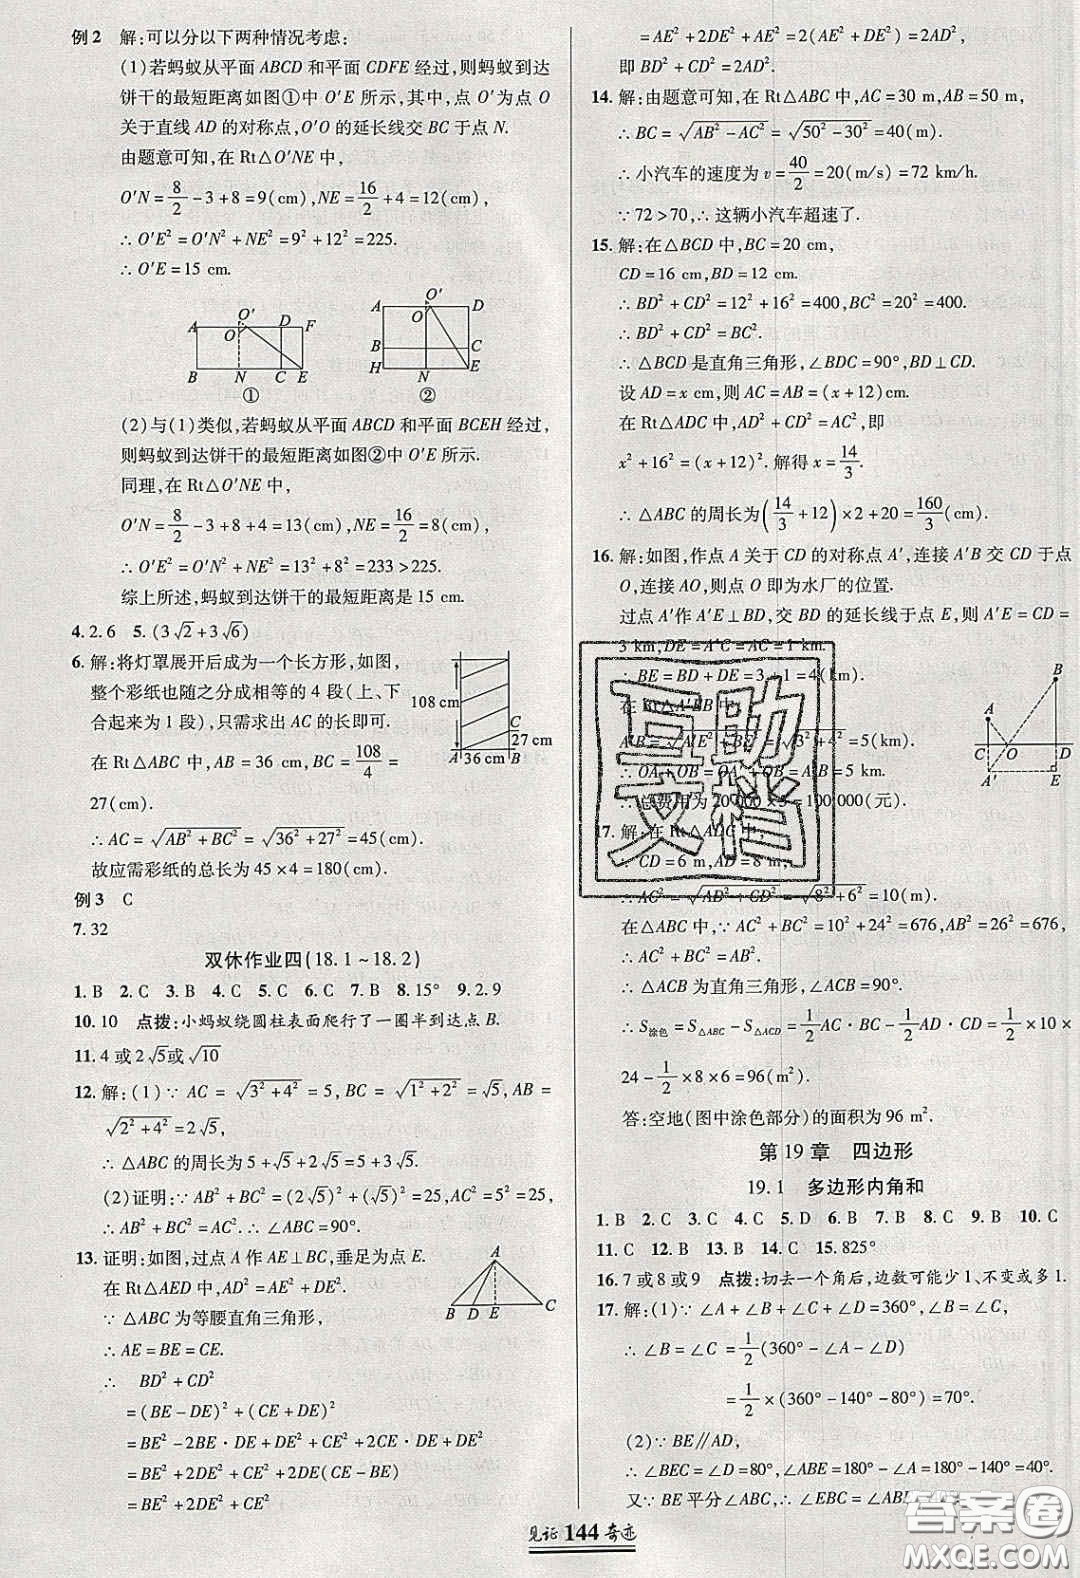 例2 解:可以分以下两种情况考虑:
(1)若蚂蚁从平面 ABCD 和平面 CDFE 经过,则蚂蚁到达
饼干的最短距离如图①中 O′E 所示,其中,点 O′为点 O
关于直线 AD 的对称点,O′O 的延长线交 BC 于点 N.
由题意可知,在 Rt△O′NE 中,
O′N=8/2-3+8=9(cm),NE=16/2+4=12(cm),
∴ O′E²=O′N²+NE²=9²+12²=225.
∴ O′E=15 cm.
A O′ O D F B N C E ①
A O′ O D B C H N E ②
(2)与(1)类似,若蚂蚁从平面 ABCD 和平面 BCEH 经过,
则蚂蚁到达饼干的最短距离如图②中 O′E 所示.
同理,在 Rt△O′NE 中,
O′N=8/2-3+8+4=13(cm),NE=16/2=8(cm),
∴ O′E²=O′N²+NE²=13²+8²=233>225.
综上所述,蚂蚁到达饼干的最短距离是 15 cm.
4. 2.6 5. (3√2+3√6)
6. 解:将灯罩展开后成为一个长方形,如图,
整个彩纸也随之分成相等的 4 段(上、下
合起来为 1 段),只需求出 AC 的长即可.
在 Rt△ABC 中,AB=36 cm,BC=108/4=
27(cm).
108 cm C 27 cm A 36 cm B
∴ AC=√(AB²+BC²)=√(36²+27²)=45(cm).
故应需彩纸的总长为 45×4=180(cm).
例3 C
7. 32
双休作业四(18.1~18.2)
1. B 2. C 3. B 4. C 5. C 6. C 7. B 8. 15° 9. 2.9
10. 10 点拨:小蚂蚁绕圆柱表面爬行了一圈半到达点 B.
11. 4 或 2√5或√10
12. 解:(1)∵ AC=√(3²+4²)=5,BC=√(1²+2²)=√5,AB=
√(2²+4²)=2√5,
∴ △ABC 的周长为 5+√5+2√5=5+3√5.
(2)证明:∵ AB²+BC²=(2√5)²+(√5)²=25,AC²=5²=25,
∴ AB²+BC²=AC².∴ ∠ABC=90°.
13. 证明:如图,过点 A 作 AE⊥BC,垂足为点 E.
在 Rt△AED 中,AD²=AE²+DE².
∵ △ABC 为等腰直角三角形,
∴ AE=BE=CE.
A B D E C
∴ BD²+CD²
=(BE-DE)²+(CE+DE)²
=BE²-2BE·DE+DE²+CE²+2CE·DE+DE²
=BE²+2DE²+CE²+2DE(CE-BE)
=BE²+2DE²+CE²
=AE²+2DE²+AE²=2(AE²+DE²)=2AD²,
即 BD²+CD²=2AD².
14. 解:由题意可知,在 Rt△ABC 中,AC=30 m,AB=50 m,
∴ BC=√(AB²-AC²)=√(50²-30²)=40(m).
∴ 小汽车的速度为 v=40/2=20(m/s)=72 km/h.
∵ 72>70,∴ 这辆小汽车超速了.
15. 解:在△BCD 中,BC=20 cm,
CD=16 cm,BD=12 cm.
∴ BD²+CD²=12²+16²=400,BC²=20²=400.
∴ BD²+CD²=BC².
∴ △BCD 是直角三角形,∠BDC=90°,BD⊥CD.
设 AD=x cm,则 AC=AB=(x+12)cm.
在 Rt△ADC 中,AD²+CD²=AC²,即
x²+16²=(x+12)². 解得 x=14/3.
∴ △ABC 的周长为(14/3+12)×2+20=160/3(cm).
16. 解:如图,作点 A 关于 CD 的对称点 A′,连接 A′B 交 CD 于点
O,连接 AO,则点 O 即为水厂的位置.
过点 A′作 A′E⊥BD,交 BD 的延长线于点 E,则 A′E=CD=
3 km,DE=A′C=AC=1 km.
∴ BE=BD+DE=3+1=4(km).
在 Rt△A′EB 中,
A′B=√(A′E²+BE²)=√(3²+4²)=5(km).
∴ OA+OB=OA′+OB=A′B=5 km.
∴ 总费用为 20 000×5=100 000(元).
B A C O D A′ E
17. 解:在 Rt△ADC 中,
∵ CD=6 m,AD=8 m,
∴ AC²=√(AD²+CD²)=√(8²+6²)=10(m).
在△ABC 中,∵ AC²+BC²=10²+24²=676,AB²=26²=676,
∴ AC²+BC²=AB².
∴ △ACB 为直角三角形,∠ACB=90°.
∴ S涂色=S△ABC-S△ACD=1/2AC·BC-1/2AD·CD=1/2×10×
24-1/2×8×6=96(m²).
答:空地(图中涂色部分)的面积为 96 m².
第 19 章 四边形
19.1 多边形内角和
1. B 2. C 3. C 4. C 5. D 6. B 7. B 8. C 9. B 10. C
11. C 12. B 13. B 14. C 15. 825°
16. 7 或8 或9 点拨:切去一个角后,边数可能少 1、不变或多 1.
17. 解:(1)∵ ∠A+∠B+∠C+∠D=360°,∠B=∠C,
∴ ∠B=∠C=1/2(360°-∠A-∠D)
=1/2×(360°-140°-80°)=70°.
(2)∵ BE∥AD,
∴ ∠BEC=∠D=80°,∠ABE=180°-∠A=180°-140°=40°.
又∵ BE 平分∠ABC,∴ ∠EBC=∠ABE
见证 144 奇迹
互助文档
答案圈
MXQE.COM